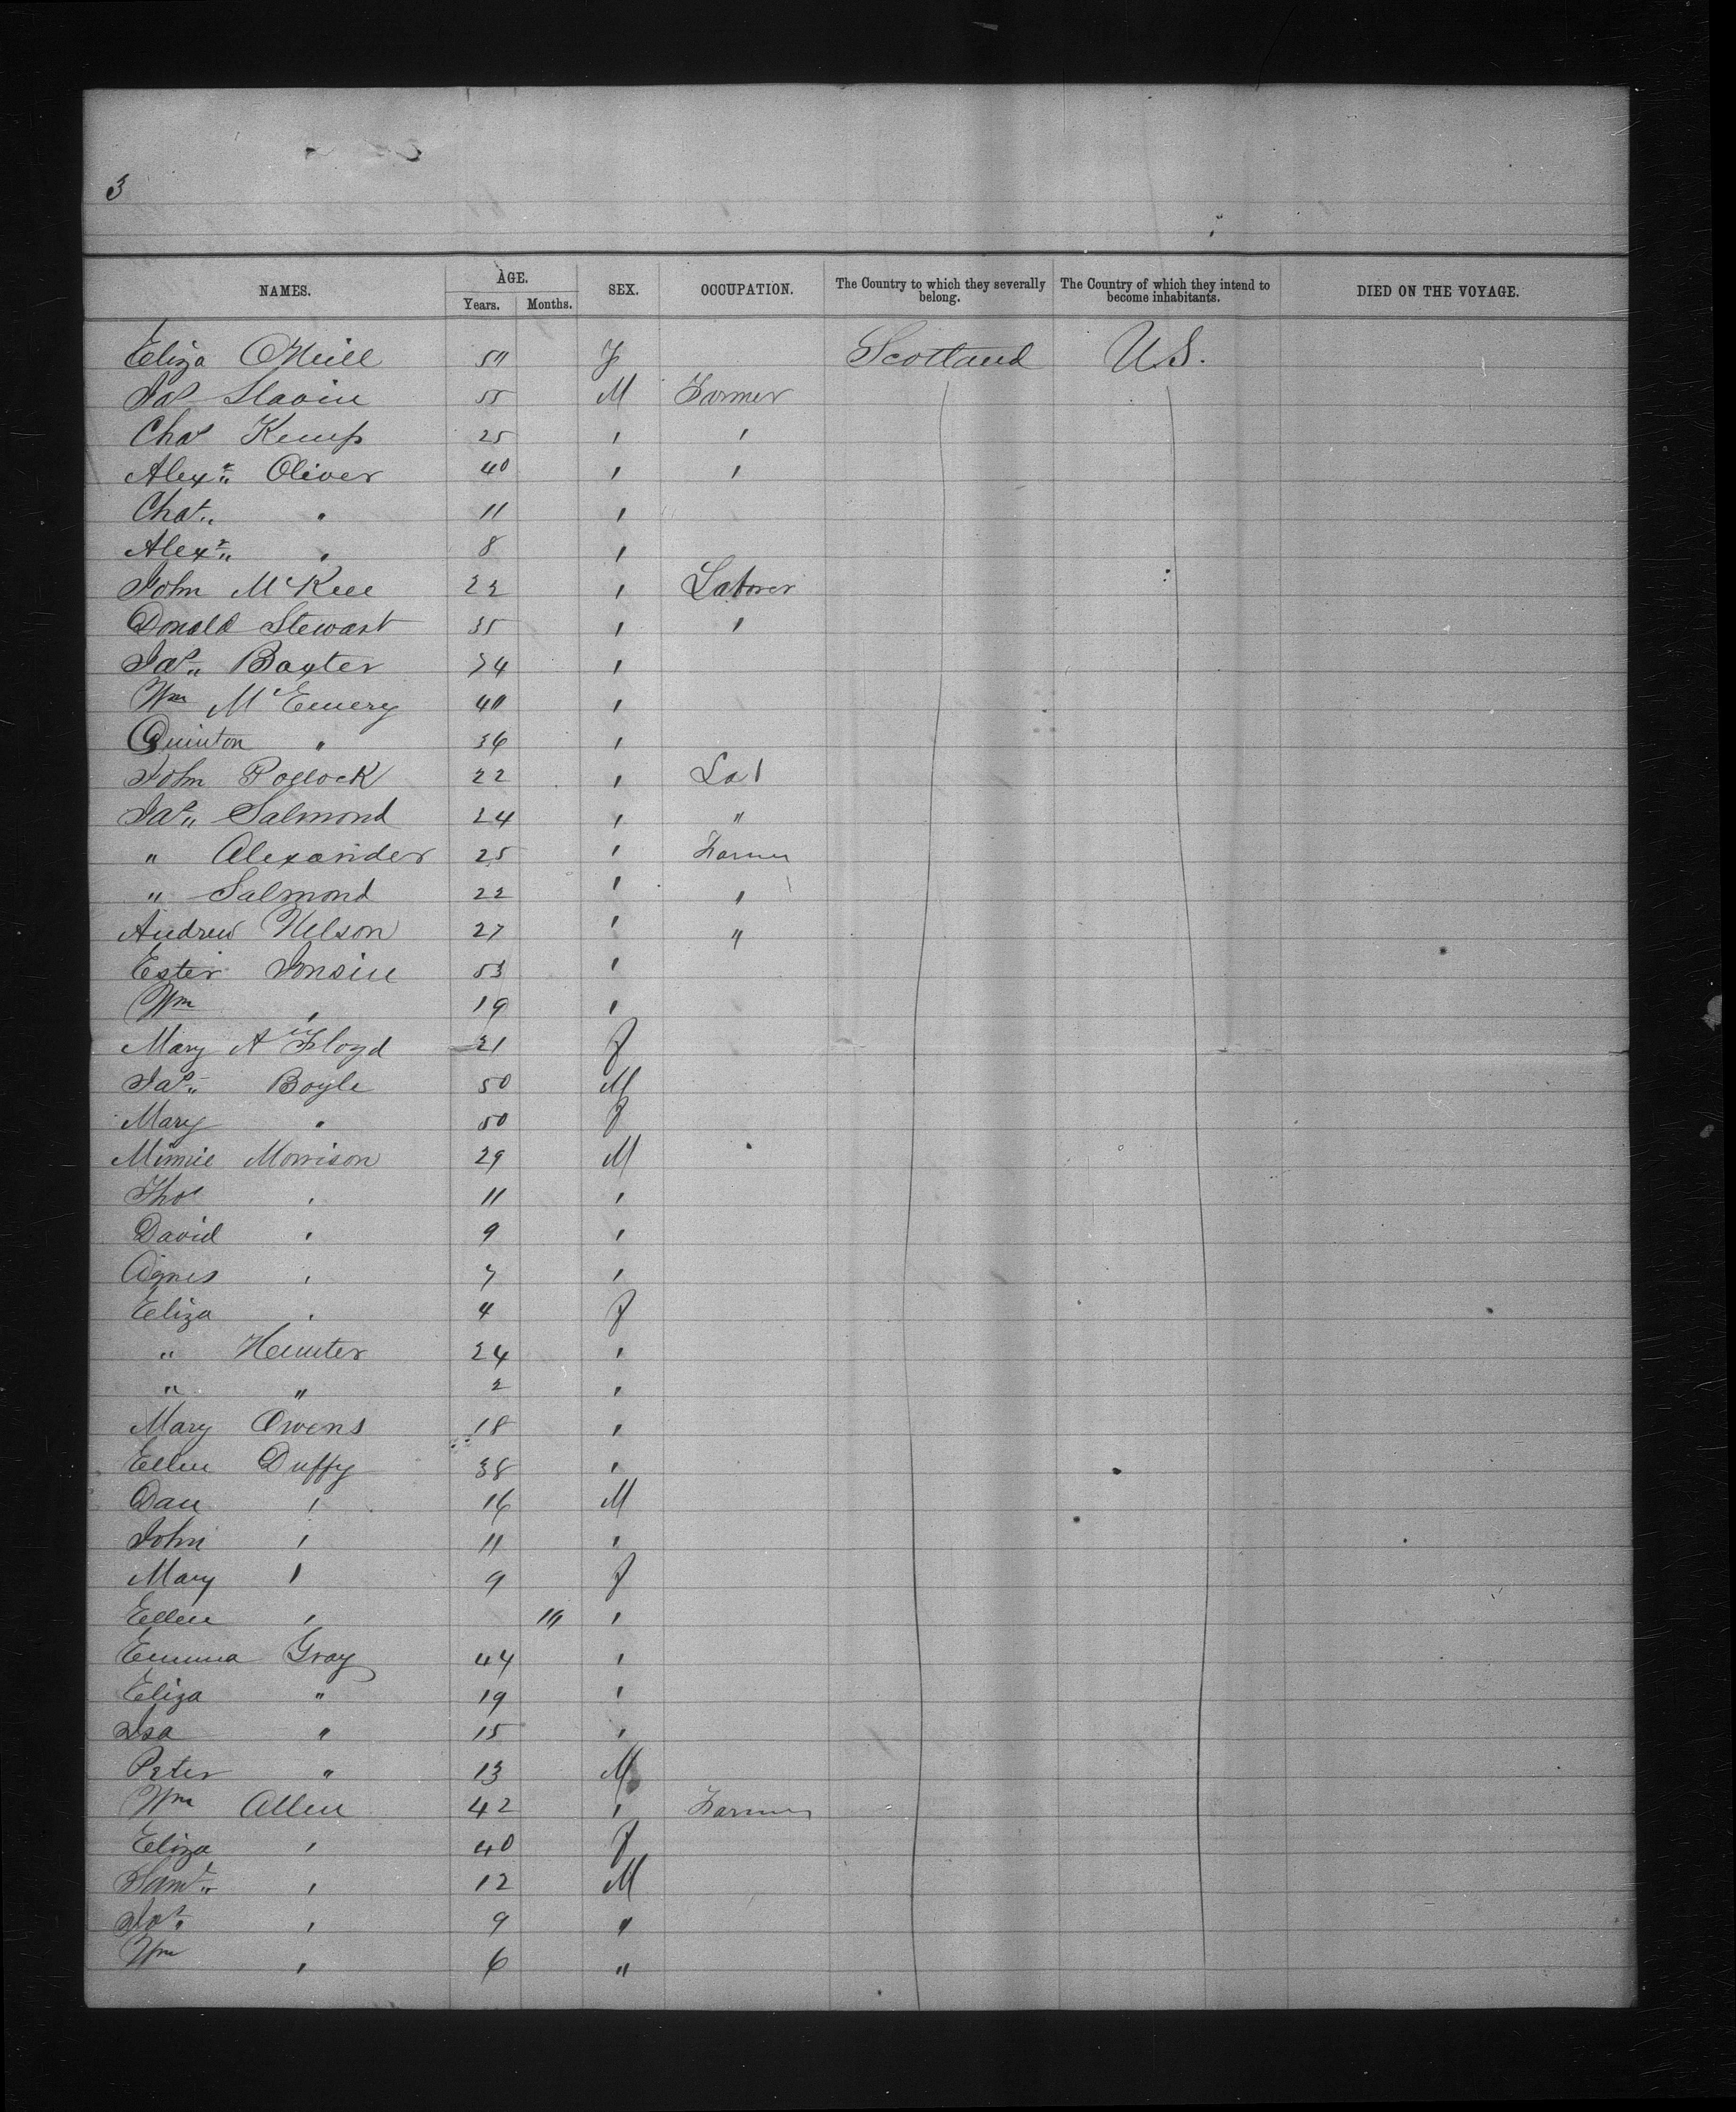 3
NAMES. AGE. Years. Months. SEX. OCCUPATION. The Country to which they severally belong. The Country of which they intend to become inhabitants. DIED ON THE VOYAGE.
Eliza ONeill 50 F Scotland U.S.
Jas Slavin 55 M Farmer
Chas Kemp 25 " "
Alexr Oliver 40 " "
Chas " 11 "
Alexr " 8 "
John McKee 22 " Laborer
Donald Stewart 35 " "
Jas Baxter 34 "
Wm McEmery 40 "
Quinton " 36 "
John Pollock 22 " Lab
Jas Salmond 24 " "
" Alexander 25 " Farmer
" Salmond 22 " "
Andrew Nelson 27 " "
Ester 53 "
Wm " 19 "
Mary A Floyd 21 f
Jas Boyle 50 M
Mary " 50 f
Minnie Morrison 29 M
Thos " 11 "
David " 9 "
Agnes " 7 "
Eliza " 4 f
" Hunter 24 "
" " 2 "
Mary Owens 18 "
Ellen Duffy 38 "
Dan " 16 M
John " 11 "
Mary " 9 f
Ellen " "
Emma Gray 44 "
Eliza " 19 "
Isa " 15 "
Peter " 13 M
Wm Allen 42 " Farmer
Eliza " 40 f
Saml " 12 M
Jos " 9 "
Wm " 6 "